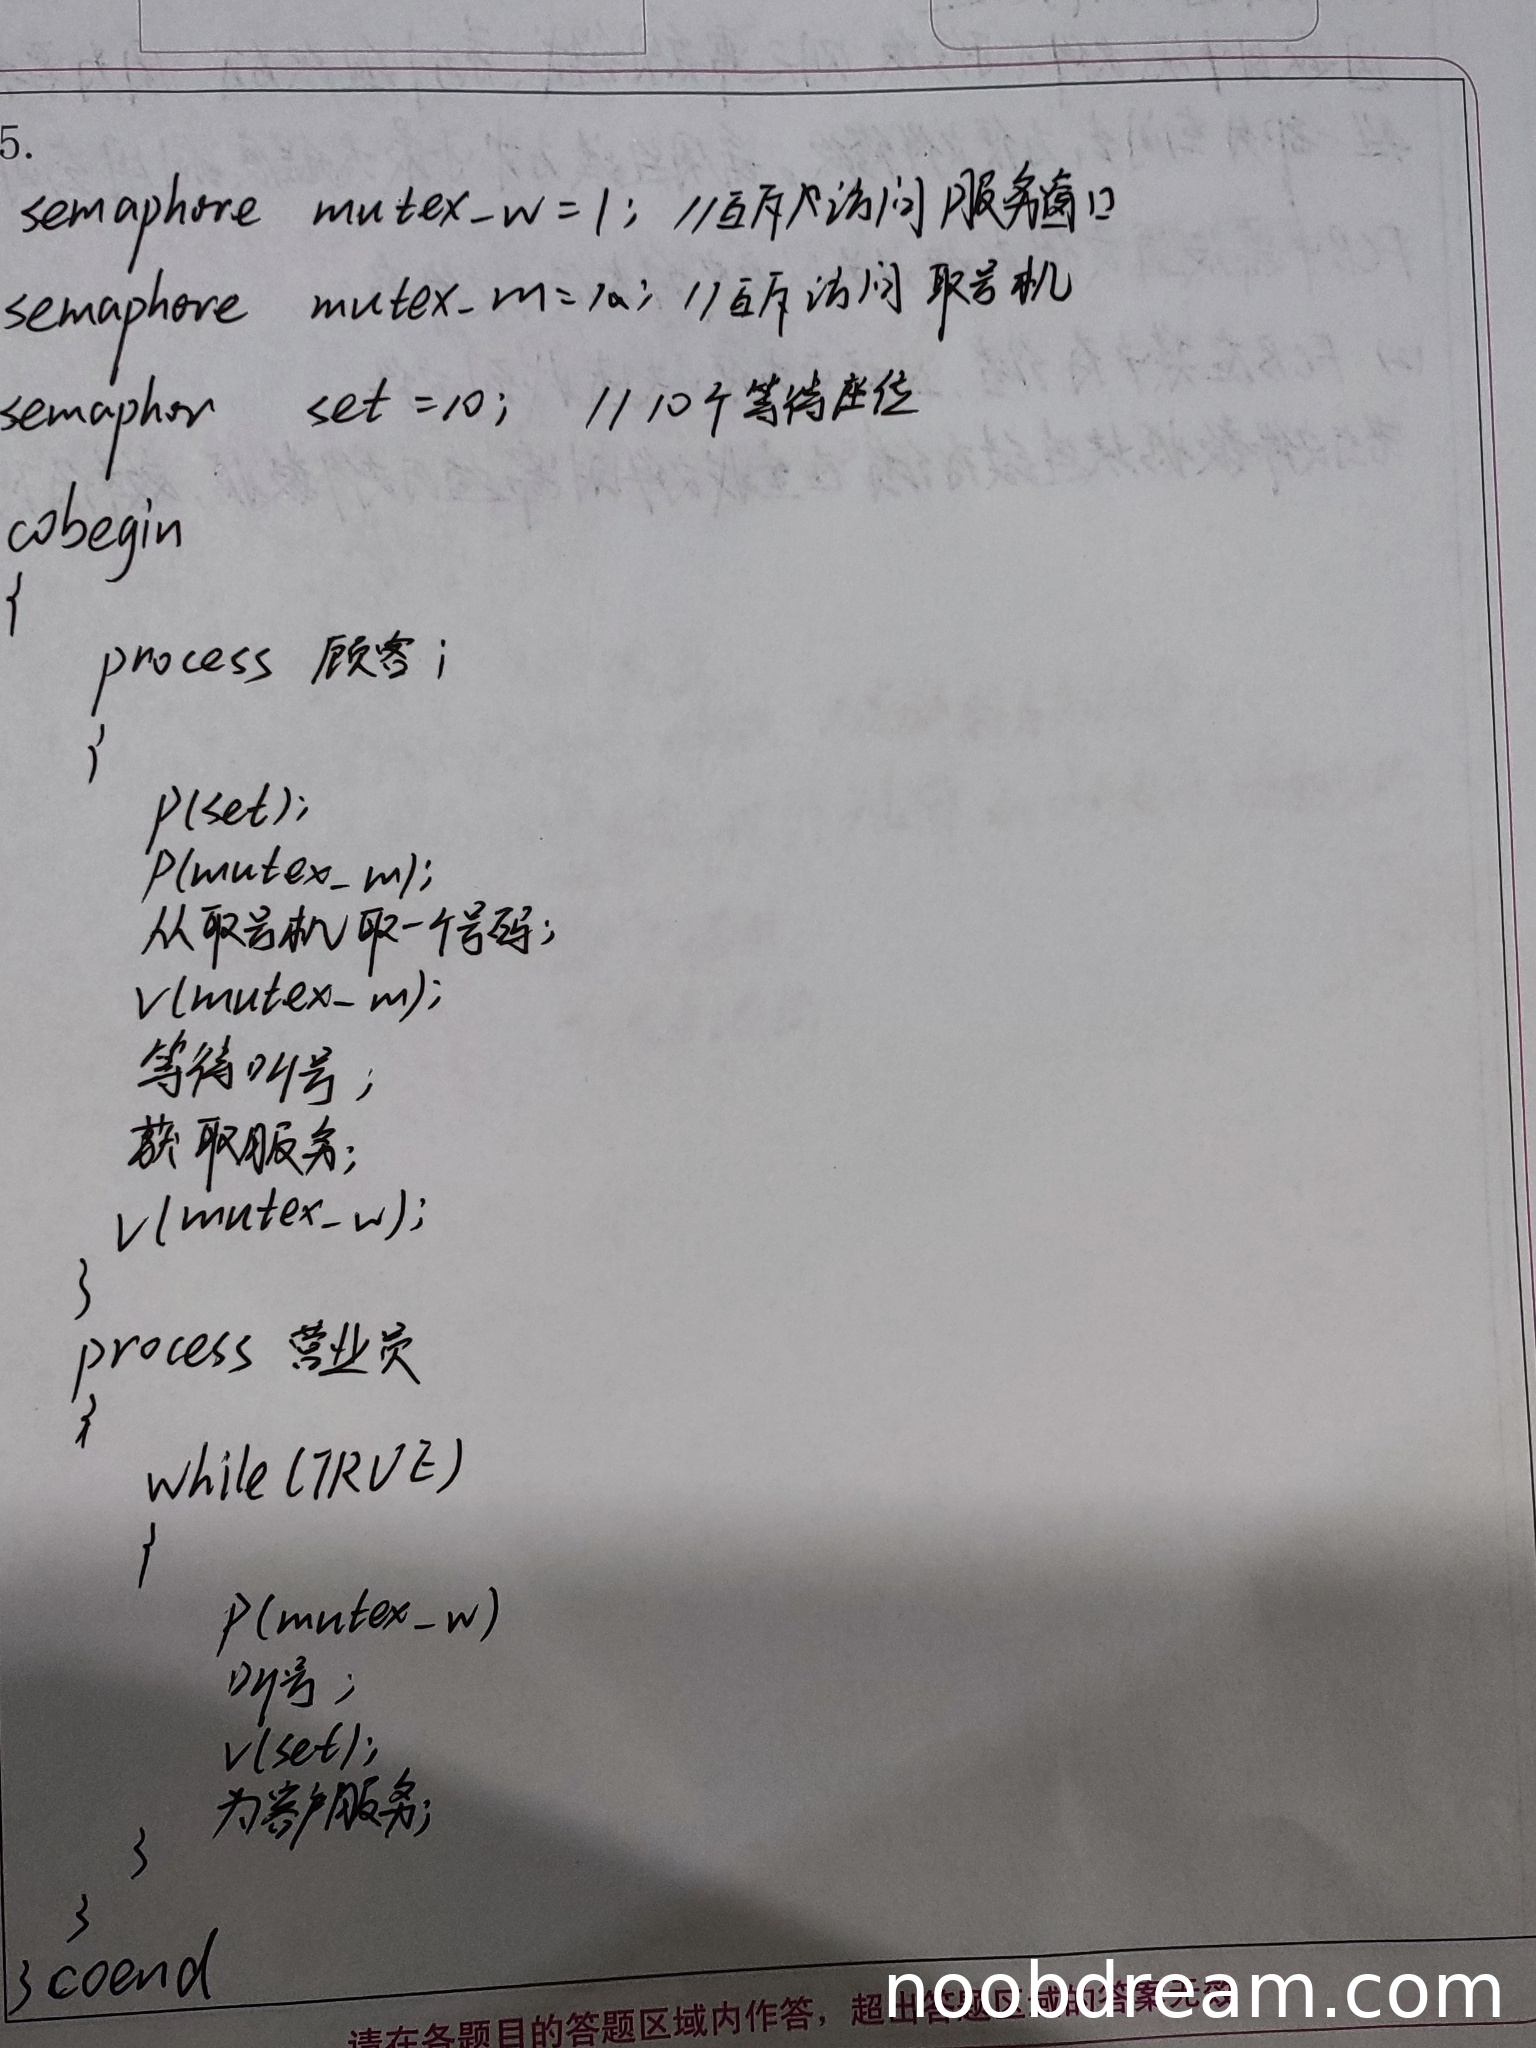 5.
semaphore mutex_w = 1; //互斥访问服务窗口
semaphore mutex_m = 10; //互斥访问取号机
semaphor set = 10; //10个等待座位
cobegin
{
process 顾客;
{
P(set);
P(mutex_m);
从取号机取一个号码;
V(mutex_m);
等待叫号;
获取服务;
V(mutex_w);
}
process 营业员
{
while(TRUE)
{
P(mutex_w)
叫号;
V(set);
为客户服务;
}
}
}coend
请在各题目的答题区域内作答，超出答题区域的答案无效
noobdream.com